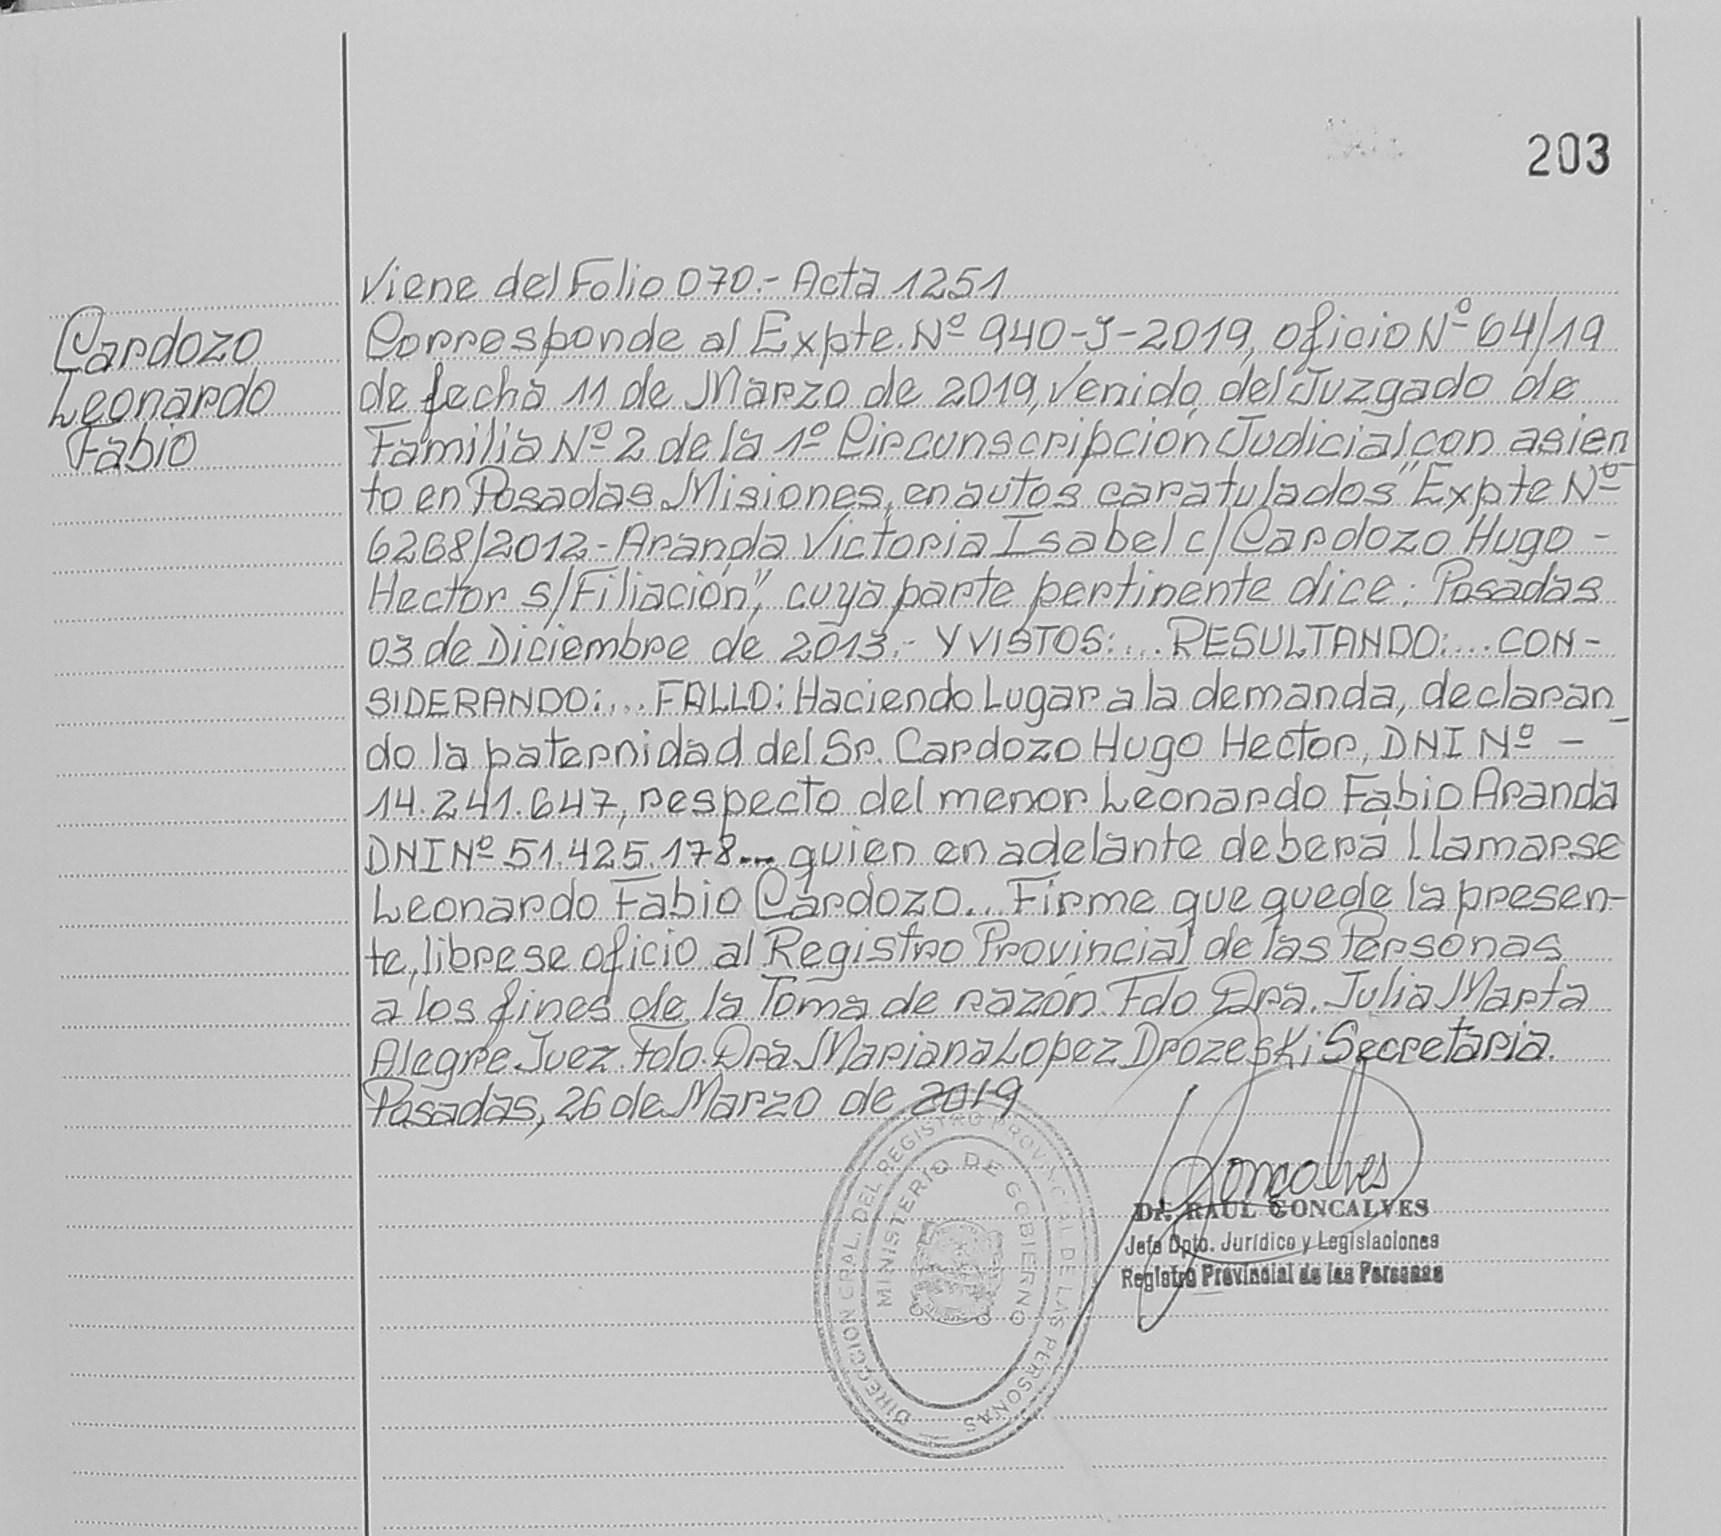 203
Viene del Folio 070.- Acta 1251
Cardozo
Leonardo
Fabio
Corresponde al Expte. Nº 940-J-2019, oficio Nº 64/19
de fecha 11 de Marzo de 2019, venido del Juzgado de
Familia Nº 2 de la 1º Circunscripción Judicial con asien
to en Posadas Misiones, en autos caratulados "Expte Nº
6268/2012 - Aranda Victoria Isabel c/ Cardozo Hugo -
Hector s/Filiación", cuya parte pertinente dice: Posadas
03 de Diciembre de 2013.- Y VISTOS:... RESULTANDO:... CON-
SIDERANDO:... FALLO: Haciendo Lugar a la demanda, declaran_
do la paternidad del Sr. Cardozo Hugo Hector, DNI Nº -
14.241.647, respecto del menor Leonardo Fabio Aranda
DNI Nº 51.425.178... quien en adelante deberá llamarse
Leonardo Fabio Cardozo... Firme que quede la presen-
te, librese oficio al Registro Provincial de las Personas
a los fines de la Toma de razón. Fdo Dra. Julia Marta
Alegre Juez. Fdo. Dra Mariana Lopez Drozeski Secretaria.
Posadas, 26 de Marzo de 2019
DIRECCION GRAL. DEL REGISTRO PROVINCIAL DE LAS PERSONAS
MINISTERIO DE GOBIERNO
Goncalves
Dr. RAUL GONCALVES
Jefe Dpto. Jurídico y Legislaciones
Registro Provincial de las Personas